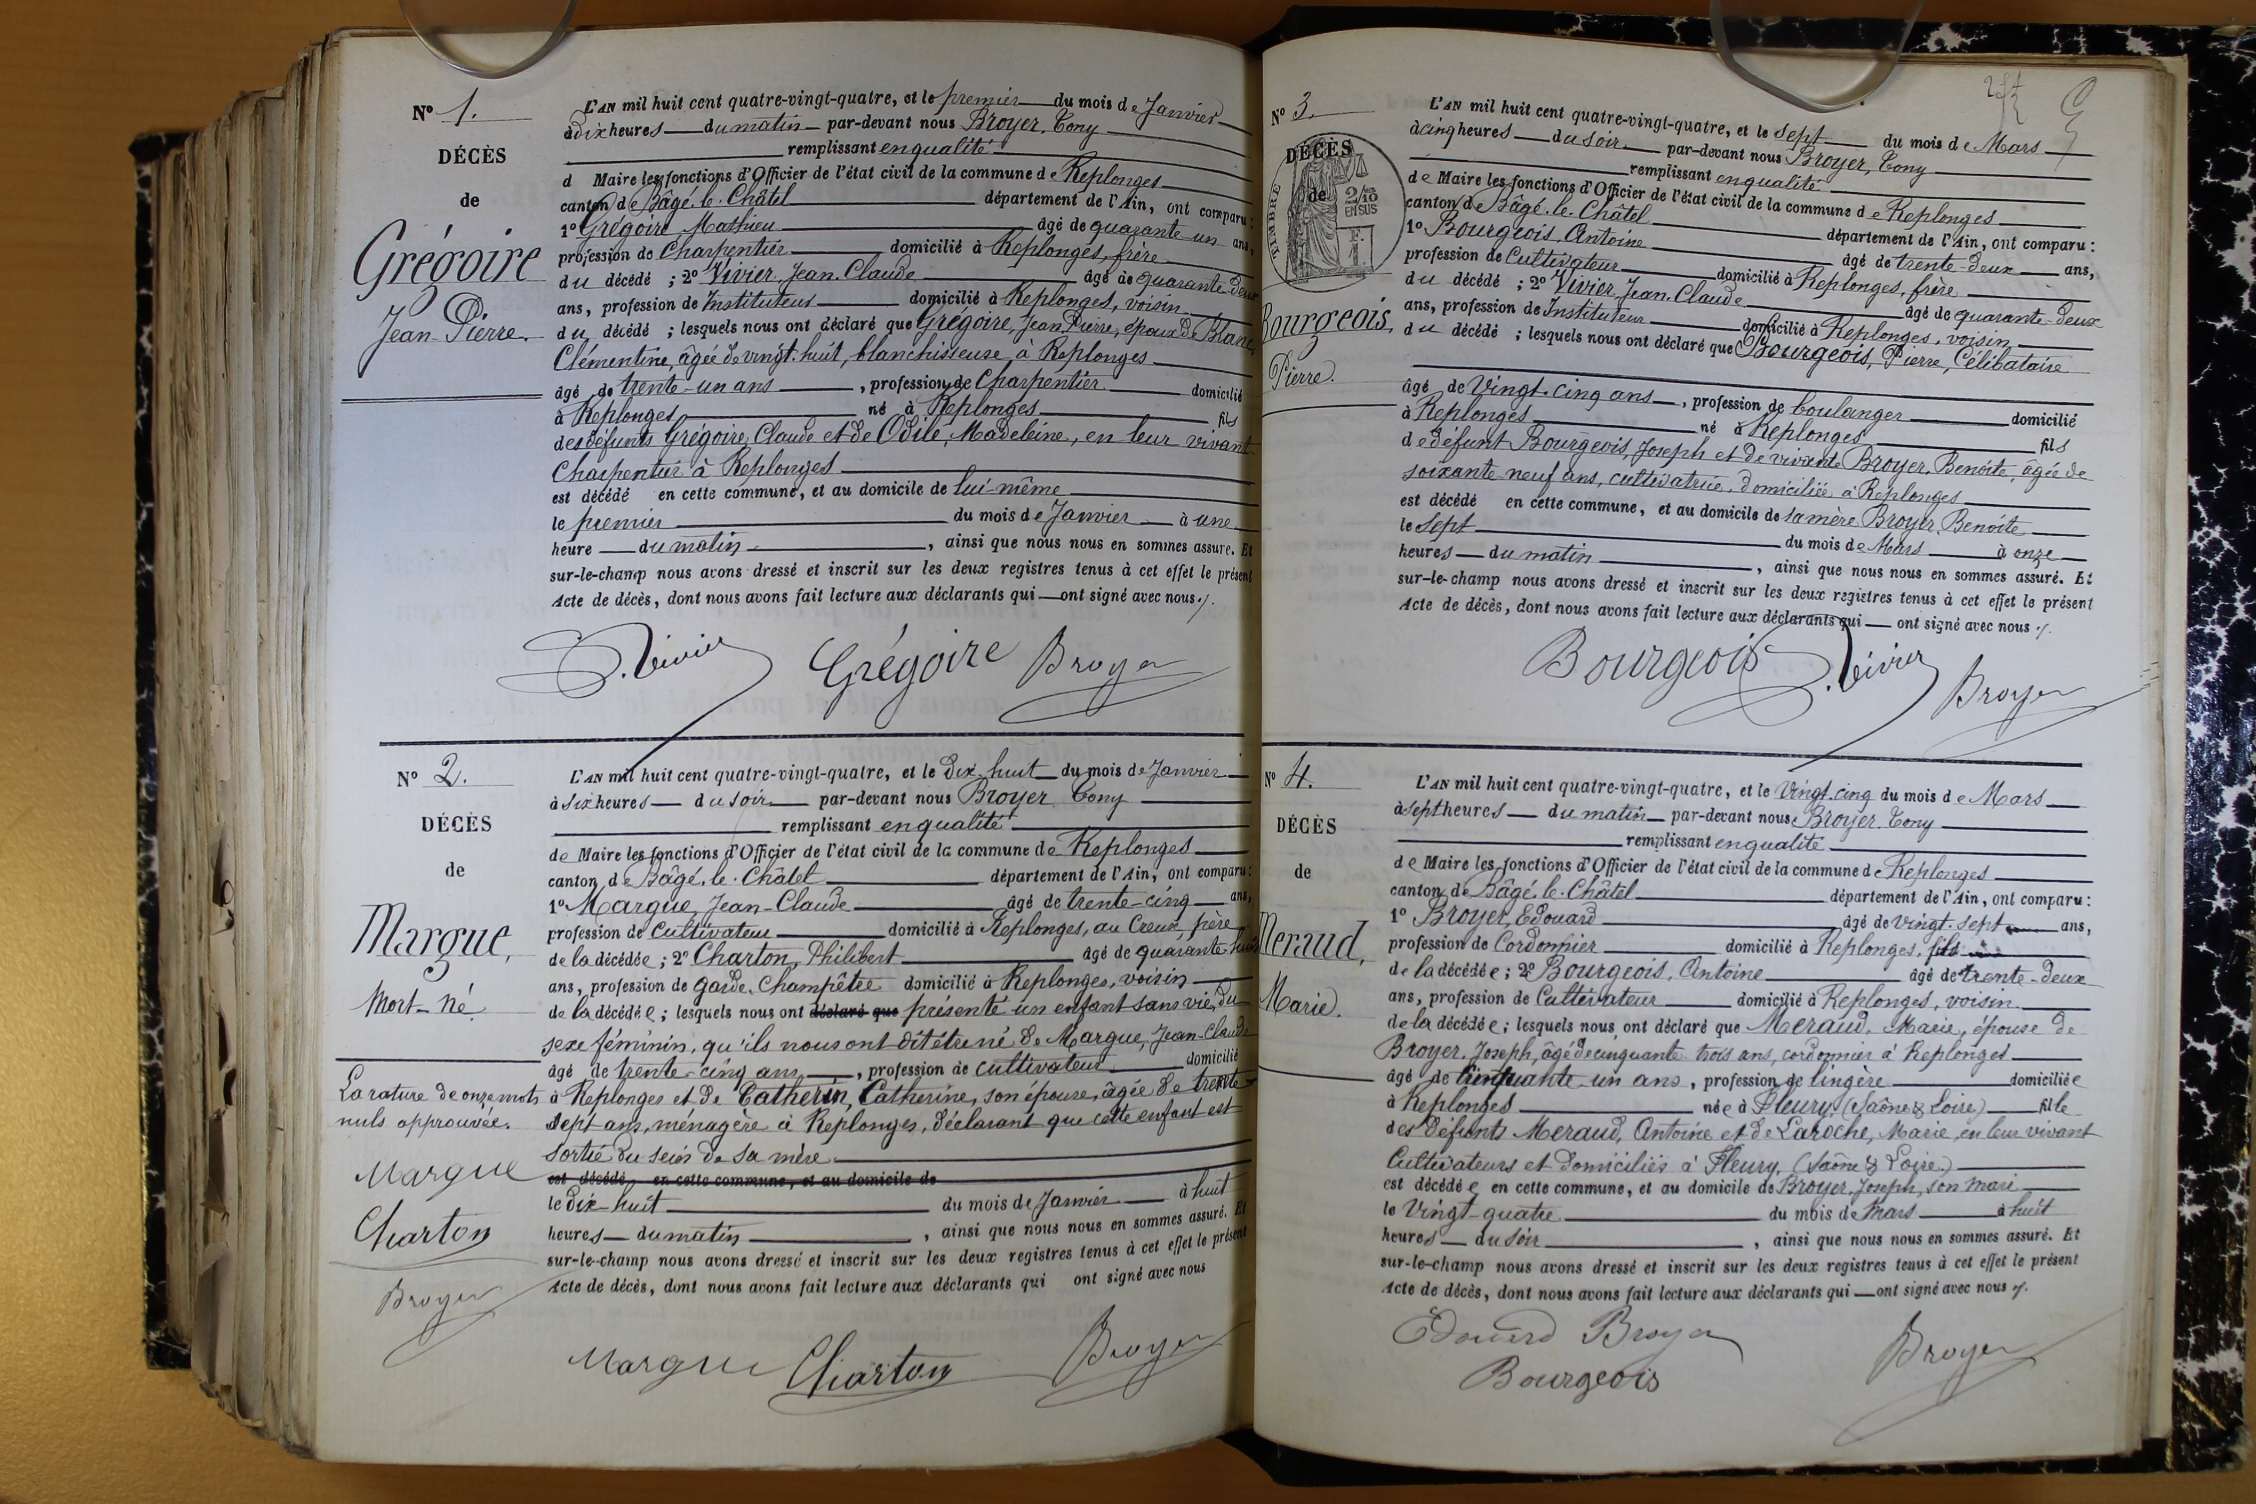 N° 1.
DÉCÈS
de
Grégoire
Jean-Pierre.
L'AN mil huit cent quatre-vingt-quatre, et le premier du mois de Janvier
à dix heures du matin par-devant nous Broyer, Tony
remplissant en qualité
d Maire les fonctions d'Officier de l'état civil de la commune de Replonges
canton de Bâgé-le-Châtel département de l'Ain, ont comparu :
1° Grégoire, Mathieu âgé de quarante-un ans,
profession de Charpentier domicilié à Replonges, frère
du décédé ; 2° Vivier, Jean-Claude âgé de quarante-deux
ans, profession de Instituteur domicilié à Replonges, voisin
du décédé ; lesquels nous ont déclaré que Grégoire, Jean Pierre, époux de Blanc,
Clémentine, âgée de vingt-huit, blanchisseuse, à Replonges
âgé de trente-un ans, profession de Charpentier domicilié
à Replonges né à Replonges fils
des défunts Grégoire, Claude et de Odile, Madeleine, en leur vivant
Charpentier à Replonges
est décédé en cette commune, et au domicile de lui-même
le premier du mois de Janvier à une
heure du matin, ainsi que nous nous en sommes assuré. Et
sur-le-champ nous avons dressé et inscrit sur les deux registres tenus à cet effet le présent
Acte de décès, dont nous avons fait lecture aux déclarants qui ont signé avec nous ./.
Vivier Grégoire Broyer
N° 2.
DÉCÈS
de
Margue,
Mort-Né.
La rature de onze mots
nuls approuvée.
Margue
Charton
Broyer
L'AN mil huit cent quatre-vingt-quatre, et le dix-huit du mois de Janvier
à six heures du soir par-devant nous Broyer, Tony
remplissant en qualité
de Maire les fonctions d'Officier de l'état civil de la commune de Replonges
canton de Bâgé-le-Châtel département de l'Ain, ont comparu :
1° Margue, Jean-Claude âgé de trente-cinq ans,
profession de Cultivateur domicilié à Replonges, au Creux, père
de la décédée ; 2° Charton, Philibert âgé de quarante-huit
ans, profession de garde-Champêtre domicilié à Replonges, voisin
de la décédée ; lesquels nous ont déclaré que présenté un enfant sans vie, du
sexe féminin, qu'ils nous ont dit être né de Margue, Jean-Claude
âgé de trente-cinq ans, profession de cultivateur domicilié
à Replonges et de Catherin, Catherine, son épouse, âgée de trente
sept ans, ménagère à Replonges, déclarant que cette enfant est
sortie du sein de sa mère
est décédé en cette commune, et au domicile de
le dix-huit du mois de Janvier à huit
heures du matin, ainsi que nous nous en sommes assuré. Et
sur-le-champ nous avons dressé et inscrit sur les deux registres tenus à cet effet le présent
Acte de décès, dont nous avons fait lecture aux déclarants qui ont signé avec nous
Margue Charton Broyer
N° 3.
DÉCÈS
de
TIMBRE
2/10
EN SUS
F.
1
Bourgeois,
Pierre.
L'AN mil huit cent quatre-vingt-quatre, et le sept du mois de Mars
à cinq heures du soir par-devant nous Broyer, Tony
remplissant en qualité
de Maire les fonctions d'Officier de l'état civil de la commune de Replonges
canton de Bâgé-le-Châtel département de l'Ain, ont comparu :
1° Bourgeois, Antoine âgé de trente-deux ans,
profession de Cultivateur domicilié à Replonges, frère
du décédé ; 2° Vivier, Jean-Claude âgé de quarante-deux
ans, profession de Instituteur domicilié à Replonges, voisin
du décédé ; lesquels nous ont déclaré que Bourgeois, Pierre, Célibataire
âgé de Vingt-cinq ans, profession de boulanger domicilié
à Replonges né à Replonges fils
de défunt Bourgeois, Joseph et de vivante Broyer, Benoite, âgée de
soixante neuf ans, cultivatrice, domiciliée à Replonges
est décédé en cette commune, et au domicile de sa mère Broyer, Benoite
le Sept du mois de Mars à onze
heures du matin, ainsi que nous nous en sommes assuré. Et
sur-le-champ nous avons dressé et inscrit sur les deux registres tenus à cet effet le présent
Acte de décès, dont nous avons fait lecture aux déclarants qui ont signé avec nous ./.
Bourgeois Vivier Broyer
N° 4.
DÉCÈS
de
Meraud,
Marie.
L'AN mil huit cent quatre-vingt-quatre, et le Vingt-cinq du mois de Mars
à sept heures du matin par-devant nous Broyer, Tony
remplissant en qualité
de Maire les fonctions d'Officier de l'état civil de la commune de Replonges
canton de Bâgé-le-Châtel département de l'Ain, ont comparu :
1° Broyer, Edouard âgé de vingt-sept ans,
profession de Cordonnier domicilié à Replonges, fils
de la décédée ; 2° Bourgeois, Antoine âgé de trente-deux
ans, profession de Cultivateur domicilié à Replonges, voisin
de la décédée ; lesquels nous ont déclaré que Meraud, Marie, épouse de
Broyer, Joseph, âgé de cinquante trois ans, cordonnier à Replonges
âgé de cinquante-un ans, profession de lingère domiciliée
à Replonges née à Fleury, (Saône & Loire) fille
des défunts Meraud, Antoine et de Laroche, Marie, en leur vivant
Cultivateurs et domiciliés à Fleury, (Saône & Loire.)
est décédée en cette commune, et au domicile de Broyer, Joseph, son mari
le Vingt-quatre du mois de Mars à huit
heures du soir, ainsi que nous nous en sommes assuré. Et
sur-le-champ nous avons dressé et inscrit sur les deux registres tenus à cet effet le présent
Acte de décès, dont nous avons fait lecture aux déclarants qui ont signé avec nous ./.
Edouard Broyer Broyer
Bourgeois